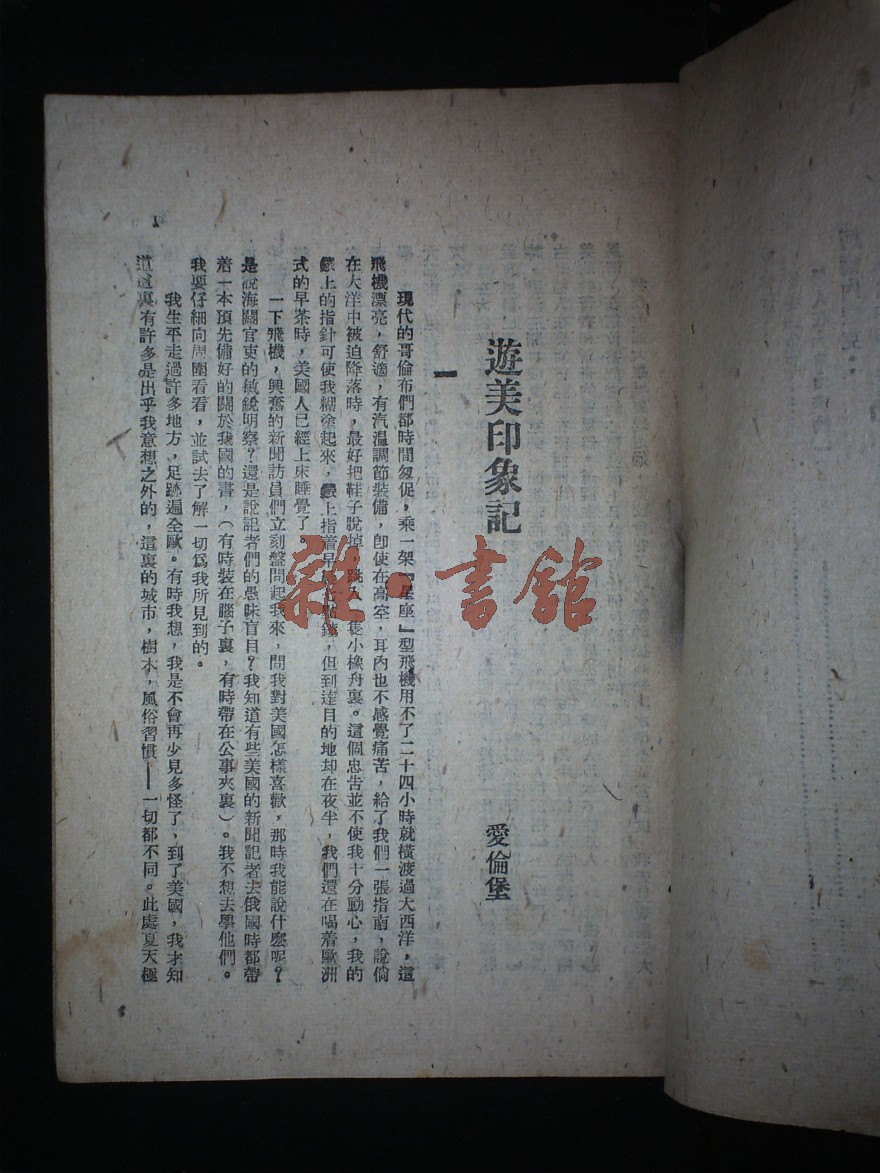 遊美印象記
愛倫堡
一
現代的哥倫布們都時間匆促，乘一架『星座』型飛機用不了二十四小時就橫渡過大西洋，這
飛機漂亮，舒適，有汽温調節裝備，卽使在高空，耳內也不感覺痛苦，給了我們一張指南，說倘
在大洋中被迫降落時，最好把鞋子脫掉，跳入一隻小橡舟裏。這個忠吿並不使我十分動心，我的
錶上的指針可使我糊塗起來，錶上指着早晨 點鐘，但到達目的地却在夜半，我們還在喝着歐洲
式的早茶時，美國人已經上床睡覺了。
一下飛機，興奮的新聞訪員們立刻盤問起我來，問我對美國怎樣喜歡，那時我能說什麽呢？
是說海關官吏的敏銳明察？還是說記者們的愚昧盲目？我知道有些美國的新聞記者去俄國時都帶
着一本預先備好的關於我國的書，（有時裝在腦子裏，有時帶在公事夾裏）。我不想去學他們。
我要仔細向周圍看看，並試去了解一切爲我所見到的。
我生平走過許多地方，足跡遍全歐。有時我想，我是不會再少見多怪了，到了美國，我才知
道這裏有許多是出乎我意想之外的，這裏的城市，樹木，風俗習慣——一切都不同。此處夏天極
雜·書館